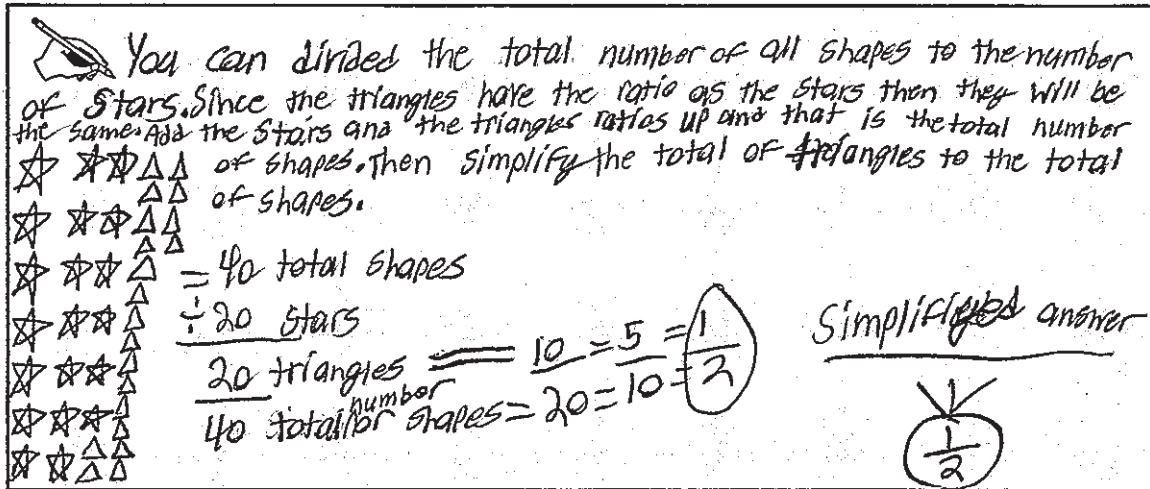 You can divided the total number of all shapes to the number
of stars. Since the triangles have the ratio as the stars then they will be
the same. Add the stars and the triangles ratios up and that is the total number
of shapes. Then simplify the total of triangles to the total
of shapes.
= 40 total shapes
÷ 20 stars
20 triangles = 10 = 5 = 1
40 total number of shapes = 20 = 10 = 2
Simplifieyed answer
1
2